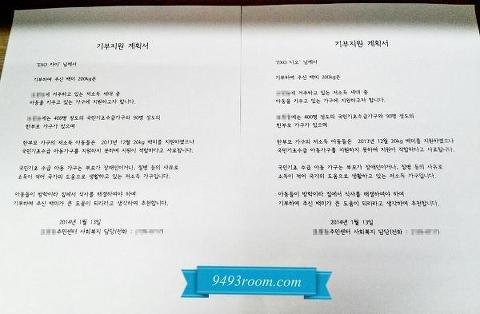 기부지원 계획서
'EXO 카이' 님께서
기부하여 주신 백미 200kg은
에 거주하고 있는 저소득 세대 중
아동을 키우고 있는 가구에 지원하고자 합니다.
에는 400명 정도의 국민기초수급가구와 90명 정도의
한부모 가구가 있으며
한부모 가구의 저소득 아동들은 2013년 12월 20kg 백미를 지원하였으나
국민기초수급 아동가구를 지원하지 못하여 지원이 적합하다고 사료됩니다.
국민기초 수급 아동 가구는 부모가 장애인이거나, 질병 등의 사유로
소득이 적어 국가의 도움으로 생활하고 있는 저소득 가구입니다.
아동들이 방학이라 집에서 식사를 해결하여야 하며
기부하여 주신 백미가 큰 도움이 되리라고 생각하며 추천합니다.
2014년 1월 13일
주민센터 사회복지 담당(전화 :
기부지원 계획서
'EXO 디오' 님께서
기부하여 주신 백미 200kg은
에 거주하고 있는 저소득 세대 중
아동을 키우고 있는 가구에 지원하고자 합니다.
에는 400명 정도의 국민기초수급가구와 90명 정도의
한부모 가구가 있으며
한부모 가구의 저소득 아동들은 2013년 12월 20kg 백미를 지원하였으나
국민기초수급 아동가구를 지원하지 못하여 지원이 적합하다고 사료됩니다.
국민기초 수급 아동 가구는 부모가 장애인이거나, 질병 등의 사유로
소득이 적어 국가의 도움으로 생활하고 있는 저소득 가구입니다.
아동들이 방학이라 집에서 식사를 해결하여야 하며
기부하여 주신 백미가 큰 도움이 되리라고 생각하여 추천합니다.
2014년 1월 13일
주민센터 사회복지 담당(전화 :
9493room.com